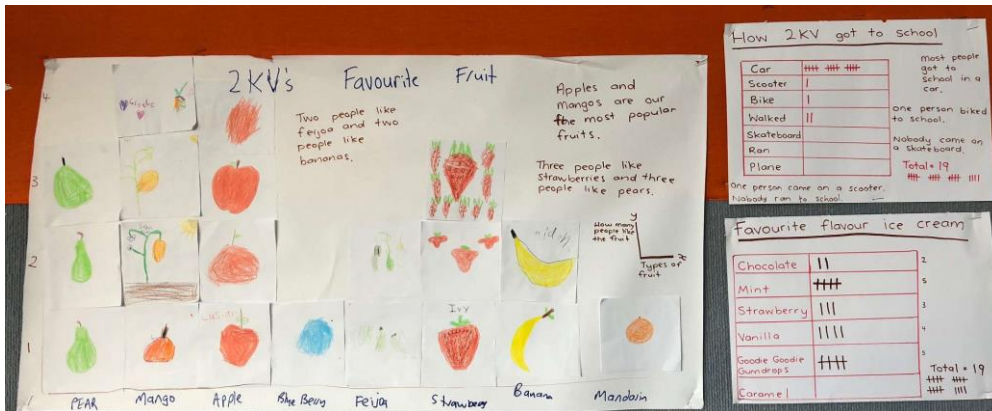 2KV's Favourite Fruit
Two people like
feijoa and two
people like
bananas.
Apples and
mangos are our
the most popular
fruits.
Three people like
Strawberries and three
people like pears.
4
3
2
1
y
How many
people like
the fruit
x
Types of
fruit
Ivy
PEAR Mango Apple Blue Berry Feijoa Strawberry Banana Mandarin
How 2KV got to school
Car
Scooter
Bike
Walked
Skateboard
Ran
Plane
most people
got to
school in a
car.
one person biked
to school.
Nobody came on
a skateboard.
Total = 19
one person came on a scooter.
Nobody ran to school.
Favourite flavour ice cream
Chocolate 2
Mint 5
Strawberry 3
Vanilla 4
Goodie Goodie
Gumdrops 5
Caramel
Total = 19